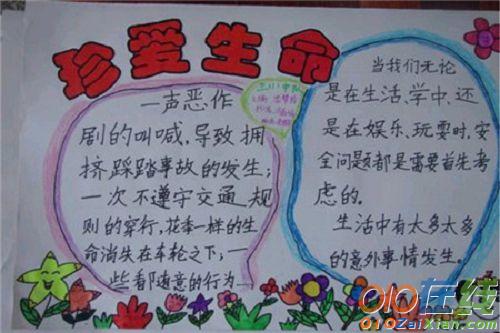 珍爱生命
一声恶作
剧的叫喊,导致拥
挤踩踏事故的发生;
一次不遵守交通规
则的穿行,花季一样的生
命消失在车轮之下;一
些看都随意的行为一
当我们无论
是在生活、学中、还
是在娱乐、玩耍时,安
全问题都是需要首先考
虑的。
生活中有太多太多
的意外事情发生。
010在线
010ZaiXian.com